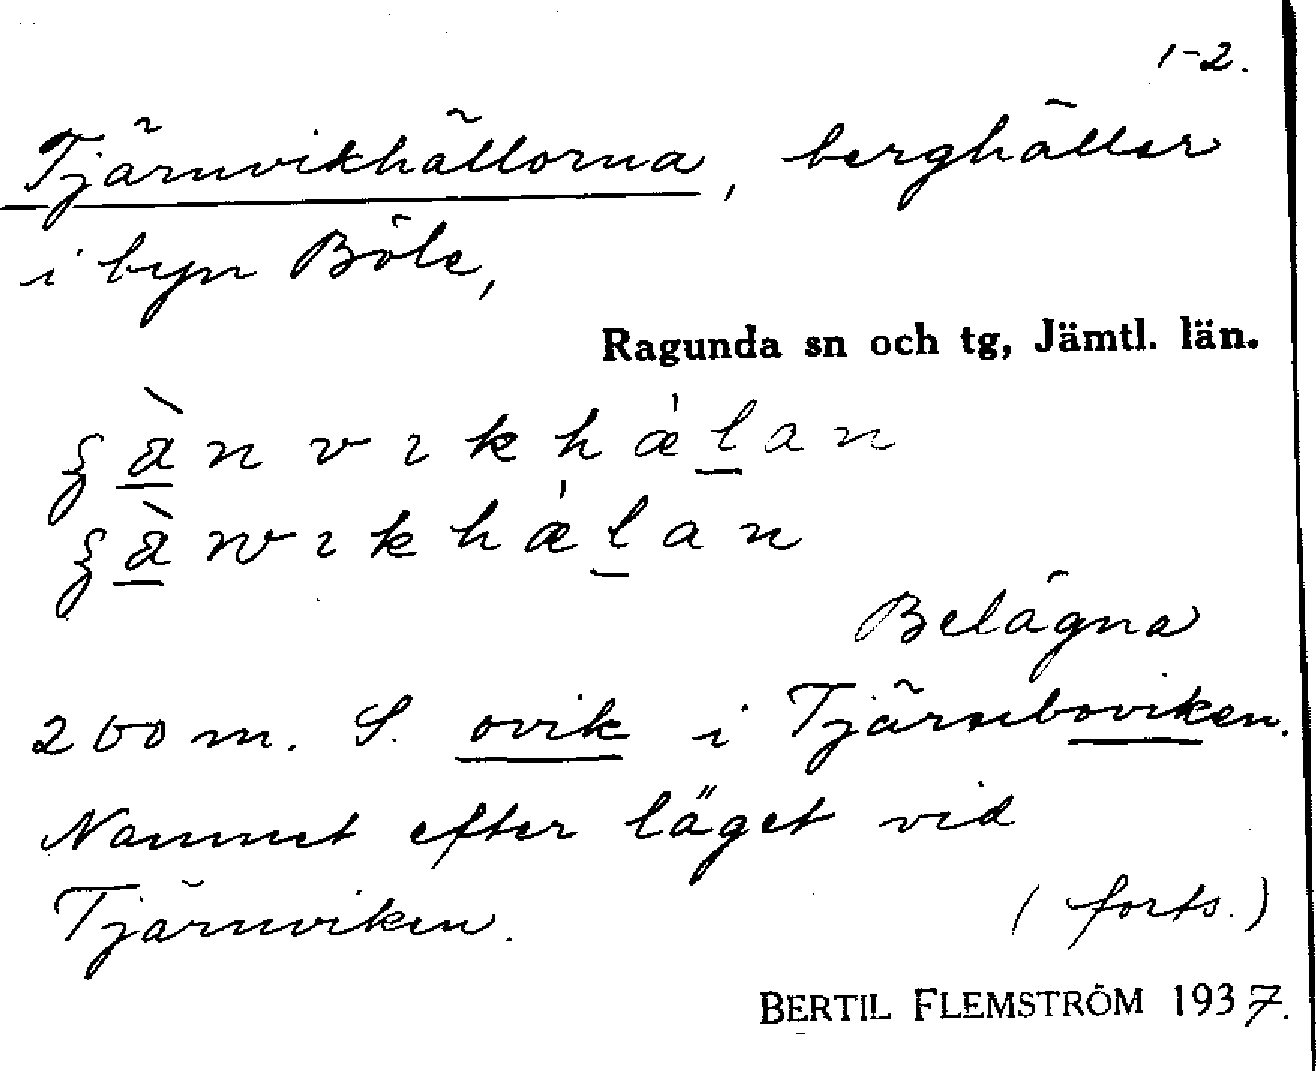 1-2.
Tjärnvikhällorna, berghällar
i byn Böle,
Ragunda sn och tg, Jämtl. län.
Belägna
200 m. S. ovik i Tjärnboviken.
Namnet efter läget vid
Tjärnviken. (forts.)
BERTIL FLEMSTRÖM 1937.